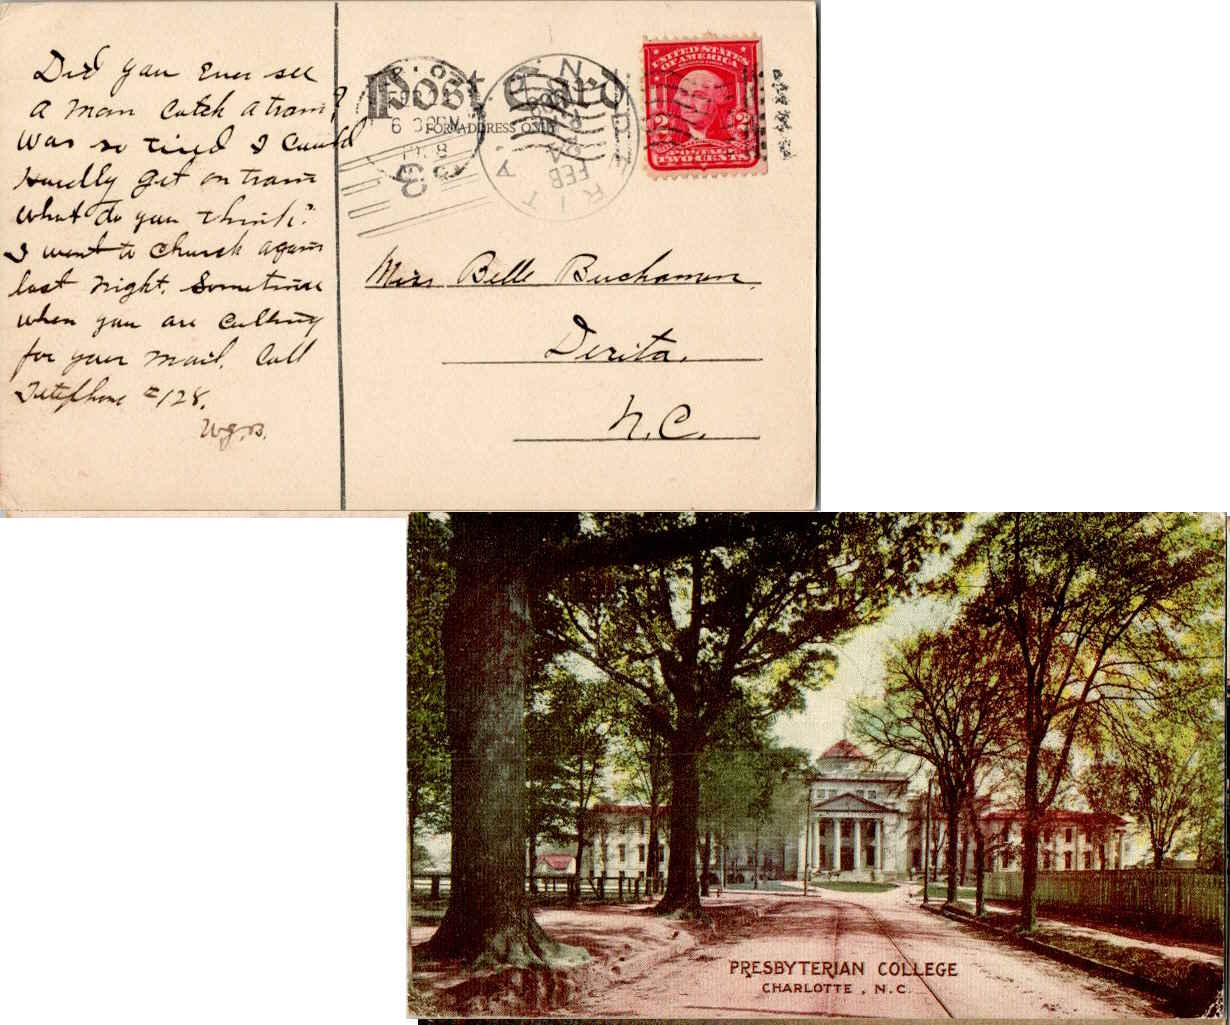 Did you ever see
a man catch a train?
Was so tired I could
Hardly get on train
What do you think?
I went to church again
last night. Sometime
when you are calling
for your mail. Call
Telephone #128.
W.G.B.
Post Card
FOR ADDRESS ONLY
P. O.
6 30 PM
3
DERITA N.
FEB
UNITED STATES
OF AMERICA
2 2
POSTAGE
TWO CENTS
Miss Belle Buchanan,
Derita,
N.C.
PRESBYTERIAN COLLEGE
CHARLOTTE, N.C.